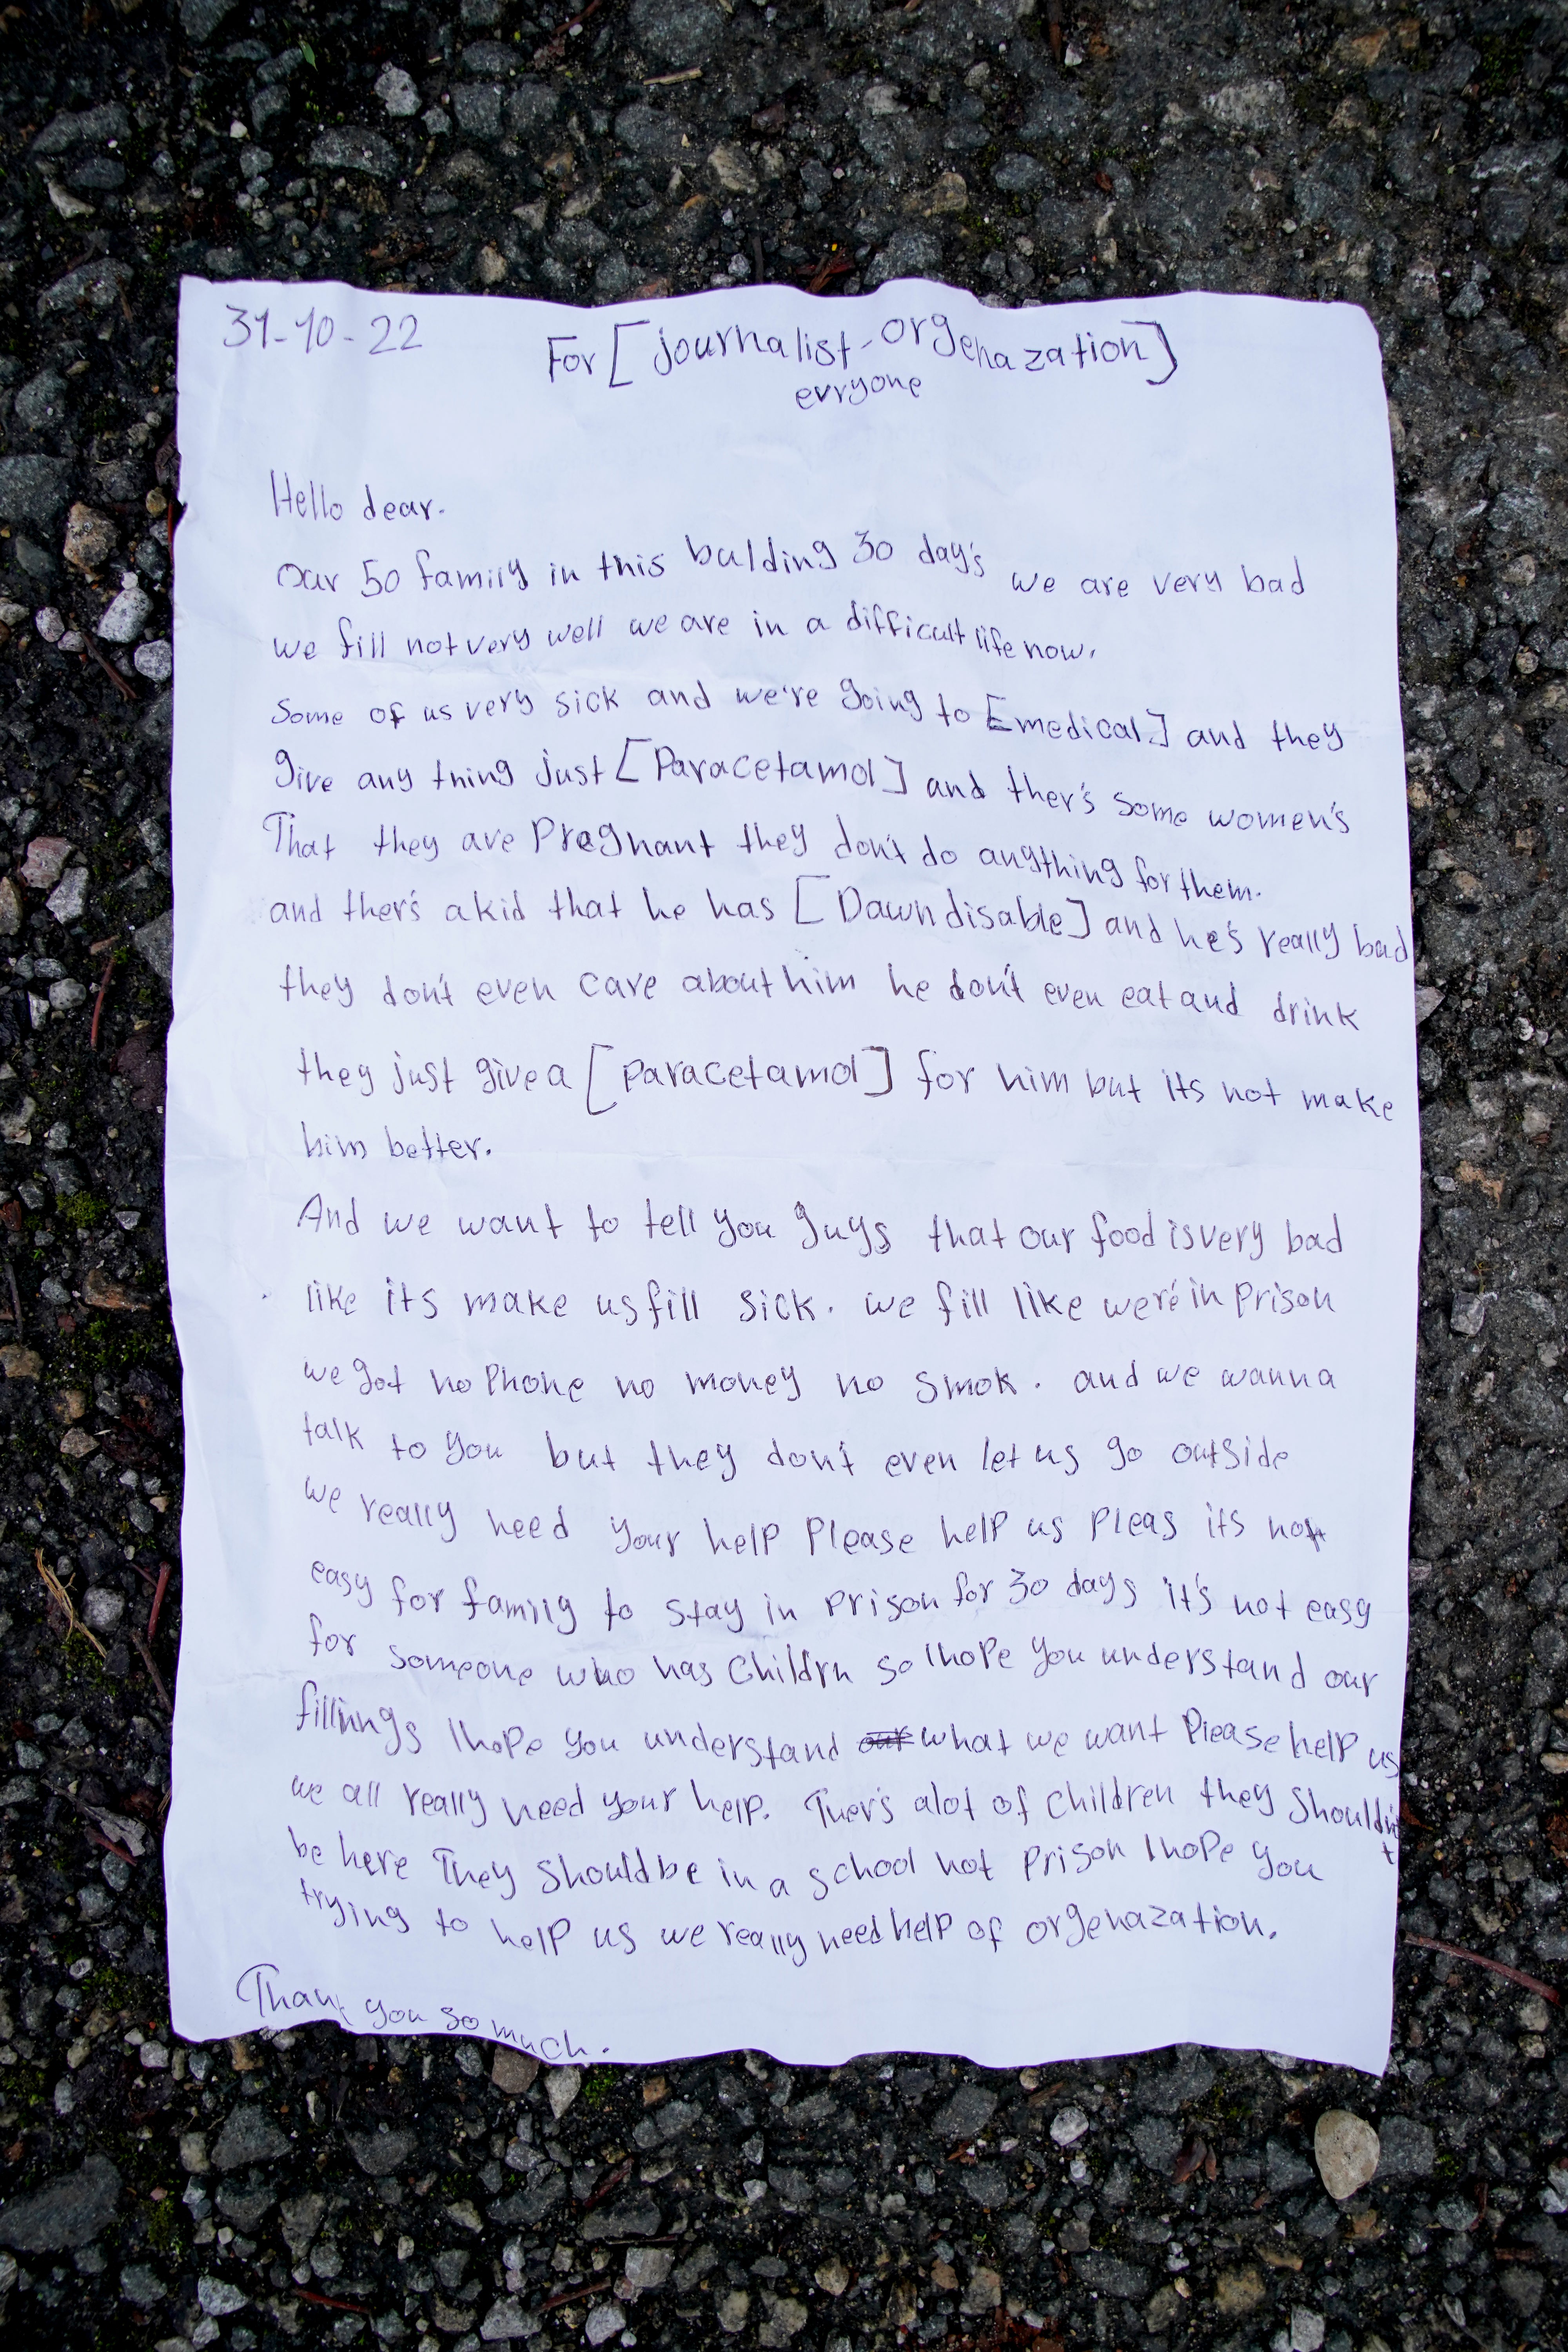 31-10-22
For [journalist-orgenazation]
evryone
Hello dear.
our 50 family in this bulding 30 day's we are very bad
we fill not very well we are in a difficult life now.
Some of us very sick and we're going to [medical] and they
give any thing just [Paracetamol] and ther's some women's
That they are Pregnant they don't do anything for them.
and ther's a kid that he has [Dawn disable] and he's really bad
they don't even care about him he don't even eat and drink
they just give a [paracetamol] for him but its not make
him better.
And we want to tell you guys that our food is very bad
like its make us fill sick. we fill like we're in prison
we got no phone no money no smok. and we wanna
talk to you but they don't even let us go outside
we really need your help Please help us pleas its not
easy for family to stay in prison for 30 days it's not easy
for someone who has childrn so I hope you understand our
fillinngs I hope you understand our what we want Please help us
we all really need your help. Ther's alot of children they shouldn't
be here They should be in a school not prison I hope you
trying to help us we really need help of orgenazation.
Thank you so much.